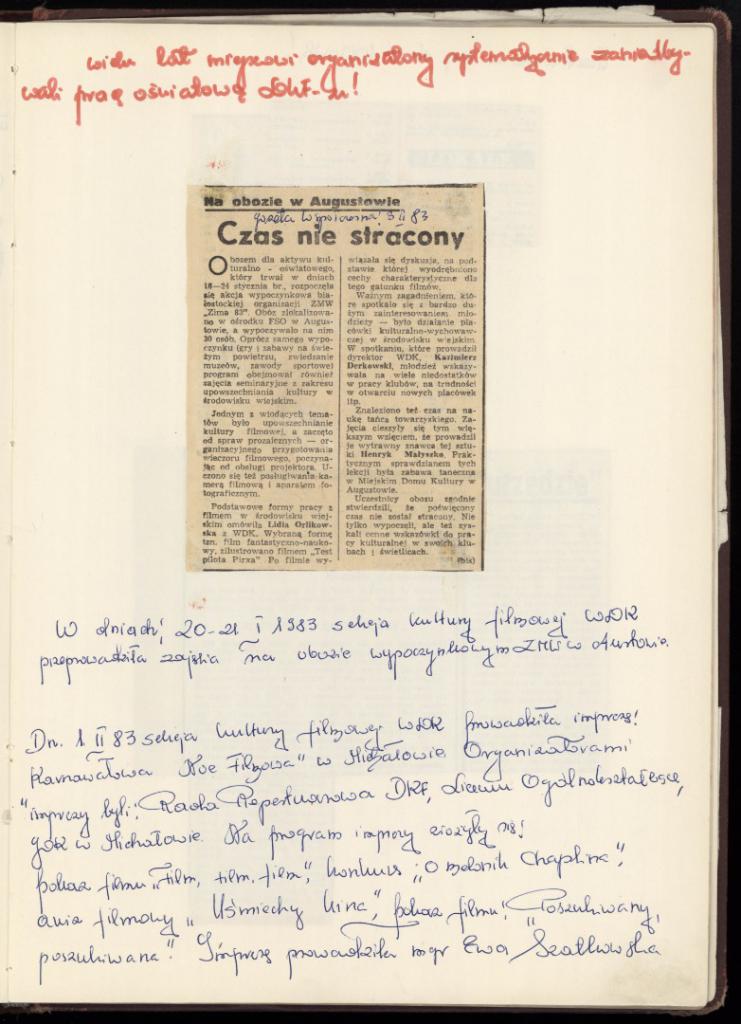 wielu lat miejscowi organizatorzy systematycznie zaniedby-
wali pracę oświatową DKF-u!
Na obozie w Augustowie
Gazeta Współczesna 3 II 83
Czas nie stracony
Obozem dla aktywu kul-
turalno - oświatowego,
który trwał w dniach
16—24 stycznia br., rozpoczęła
się akcja wypoczynkowa bia-
łostockiej organizacji ZMW
„Zima 83". Obóz zlokalizowa-
no w ośrodku FSO w Augus-
towie, a wypoczywało na nim
30 osób. Oprócz samego wypo-
czynku (gry i zabawy na świe-
żym powietrzu, zwiedzanie
muzeów, zawody sportowe)
program obejmował również
zajęcia seminaryjne z zakresu
upowszechniania kultury w
środowisku wiejskim.
Jednym z wiodących tema-
tów było upowszechnianie
kultury filmowej, a zaczęto
od spraw prozaicznych — or-
ganizacyjnego przygotowania
wieczoru filmowego, poczyna-
jąc od obsługi projektora. U-
czono się też posługiwania ka-
merą filmową i aparatem fo-
tograficznym.
Podstawowe formy pracy z
filmem w środowisku wiej-
skim omówiła Lidia Orlikow-
ska z WDK. Wybraną formę
tzn. film fantastyczno-nauko-
wy, zilustrowano filmem „Test
pilota Pirxa" Po filmie wy-
wiązała się dyskusja, na pod-
stawie której wyodrębniono
cechy charakterystyczne dla
tego gatunku filmów.
Ważnym zagadnieniem, któ-
re spotkało się z bardzo du-
żym zainteresowaniem, mło-
dzieży — było działanie pla-
cówki kulturalno-wychowaw-
czej w środowisku wiejskim
W spotkaniu, które prowadził
dyrektor WDK, Kazimierz
Derkowski, młodzież wskazy-
wała na wiele niedostatków
w pracy klubów, na trudności
w otwarciu nowych placówek
itp.
Znaleziono też czas na na-
ukę tańca towarzyskiego. Za-
jęcia cieszyły się tym wię-
kszym wzięciem, że prowadził
je wytrawny znawca tej sztu-
ki Henryk Małyszko. Prak-
tycznym sprawdzianem tych
lekcji była zabawa taneczna
w Miejskim Domu Kultury w
Augustowie.
Uczestnicy obozu zgodnie
stwierdzili, że poświęcony
czas nie został stracony. Nie
tylko wypoczęli, ale też zys-
kali cenne wskazówki do pra-
cy kulturalnej w swoich klu-
bach i świetlicach.
(bis)
W dniach 20-21 I 1983 sekcja kultury filmowej WDK
przeprowadziła zajęcia na obozie wypoczynkowym ZMW w
Dn. 1 II 83 sekcja kultury filmowej WDK prowadziła imprezę!
Karnawałowa Noc Filmowa" w Michałowie. Organizatorami
imprezy byli: Rada Repertuarowa DKF, Liceum Ogólnokształcące,
GOK w Michałowie. Na program imprezy złożyły się!
pokaz filmu „Film, film, film", konkurs „O melonik Chaplina",
filmowy „Uśmiechy kina", pokaz filmu „Poszukiwany,
poszukiwana". Imprezę prowadziła mgr Ewa Szałkowska